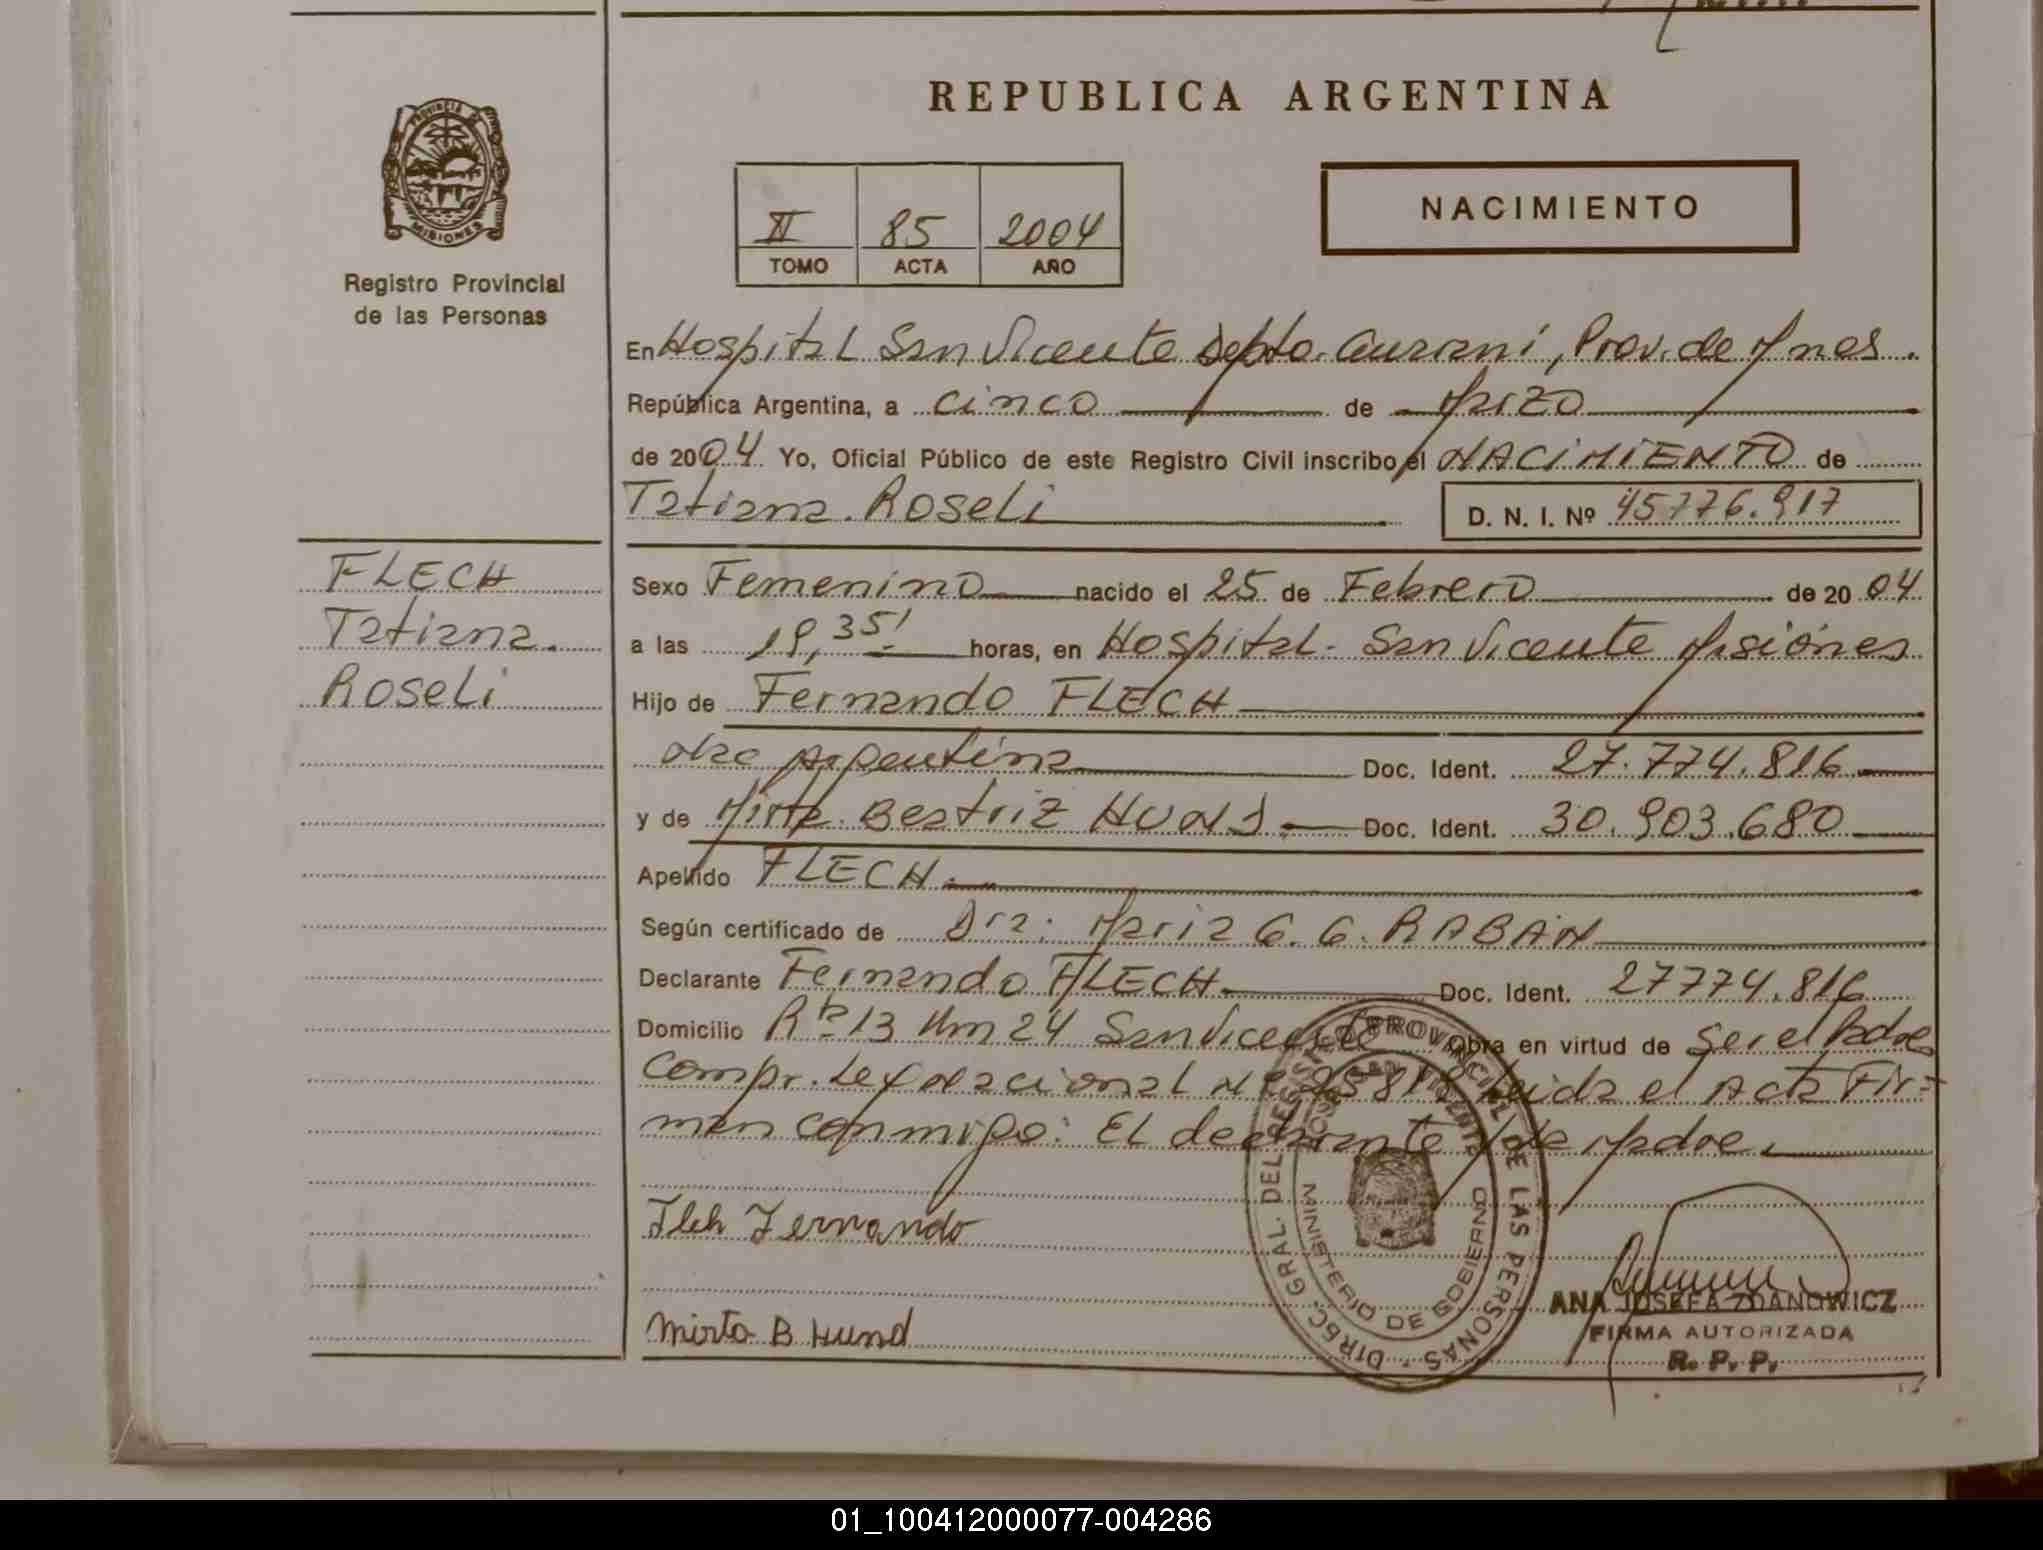 REPUBLICA ARGENTINA
PROVINCIA DE
MISIONES
Registro Provincial
de las Personas
II 85 2004
TOMO ACTA AÑO
NACIMIENTO
En Hospital San Vicente Depto. Guarani, Prov. de Mnes.
República Argentina, a cinco de Marzo
de 2004 Yo, Oficial Público de este Registro Civil inscribo el NACIMIENTO de
Tatiana Roseli
D. N. I. Nº 45776.917
FLECH
Tatiana.
Roseli
Sexo Femenino nacido el 25 de Febrero de 2004
a las 19,35' horas, en Hospital - San Vicente Misiones
Hijo de Fernando FLECH
Argentina Doc. Ident. 27.774.816
y de Mirta Beatriz HUND Doc. Ident. 30.903.680
Apellido FLECH.
Según certificado de Dra: Maria G. G. RABAN
Declarante Fernando FLECH Doc. Ident. 27774.816
Domicilio Rta 13 Km 24 San Vicente Obra en virtud de ser el Padre
Compr. Leida el Acta Fir=
man conmigo: El declarante y la Madre.
Flech Fernando
Mirta B Hund
DIREC. GRAL. DEL REGISTRO PROVINCIAL DE LAS PERSONAS
MINISTERIO DE GOBIERNO
ANA JOSEFA ZDANOWICZ
FIRMA AUTORIZADA
R. P. P.
01_100412000077-004286